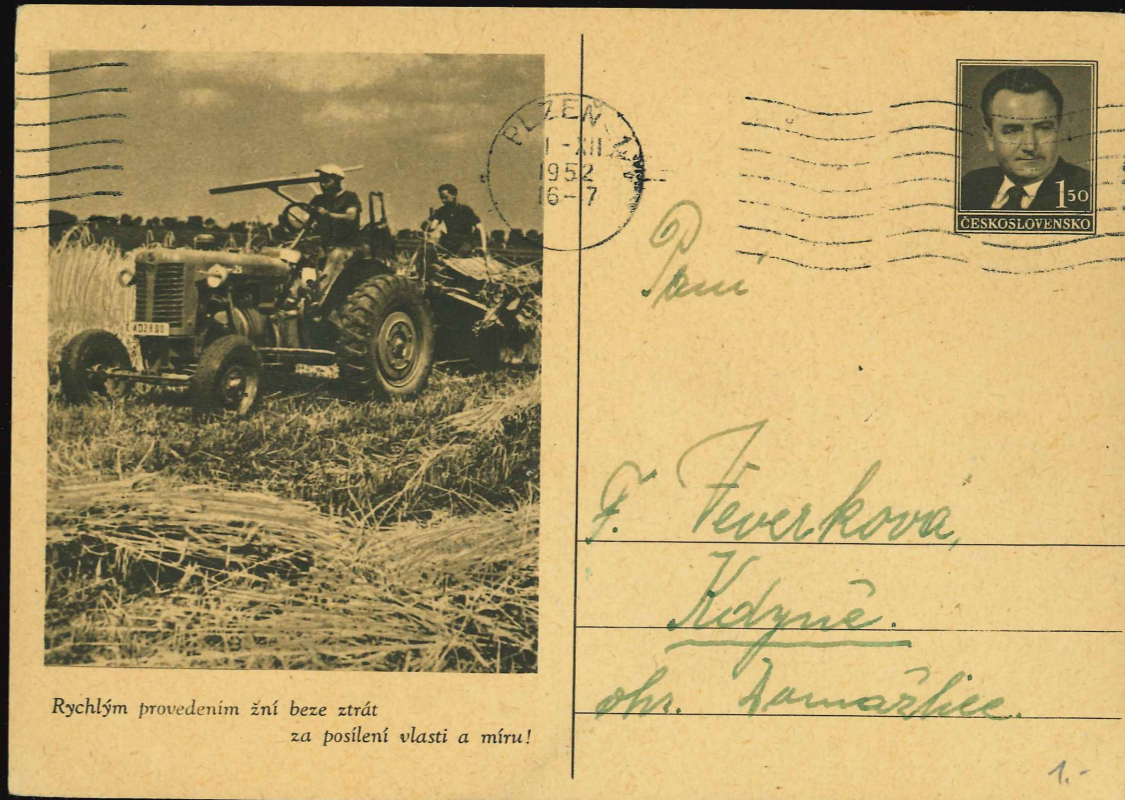 PLZEŇ 1
1 -XII
1952
16-7
1 50
ČESKOSLOVENSKO
Paní
F. Veverková,
Kdyně.
okr. Domažlice.
Rychlým provedením žní beze ztrát
za posílení vlasti a míru!
1.-